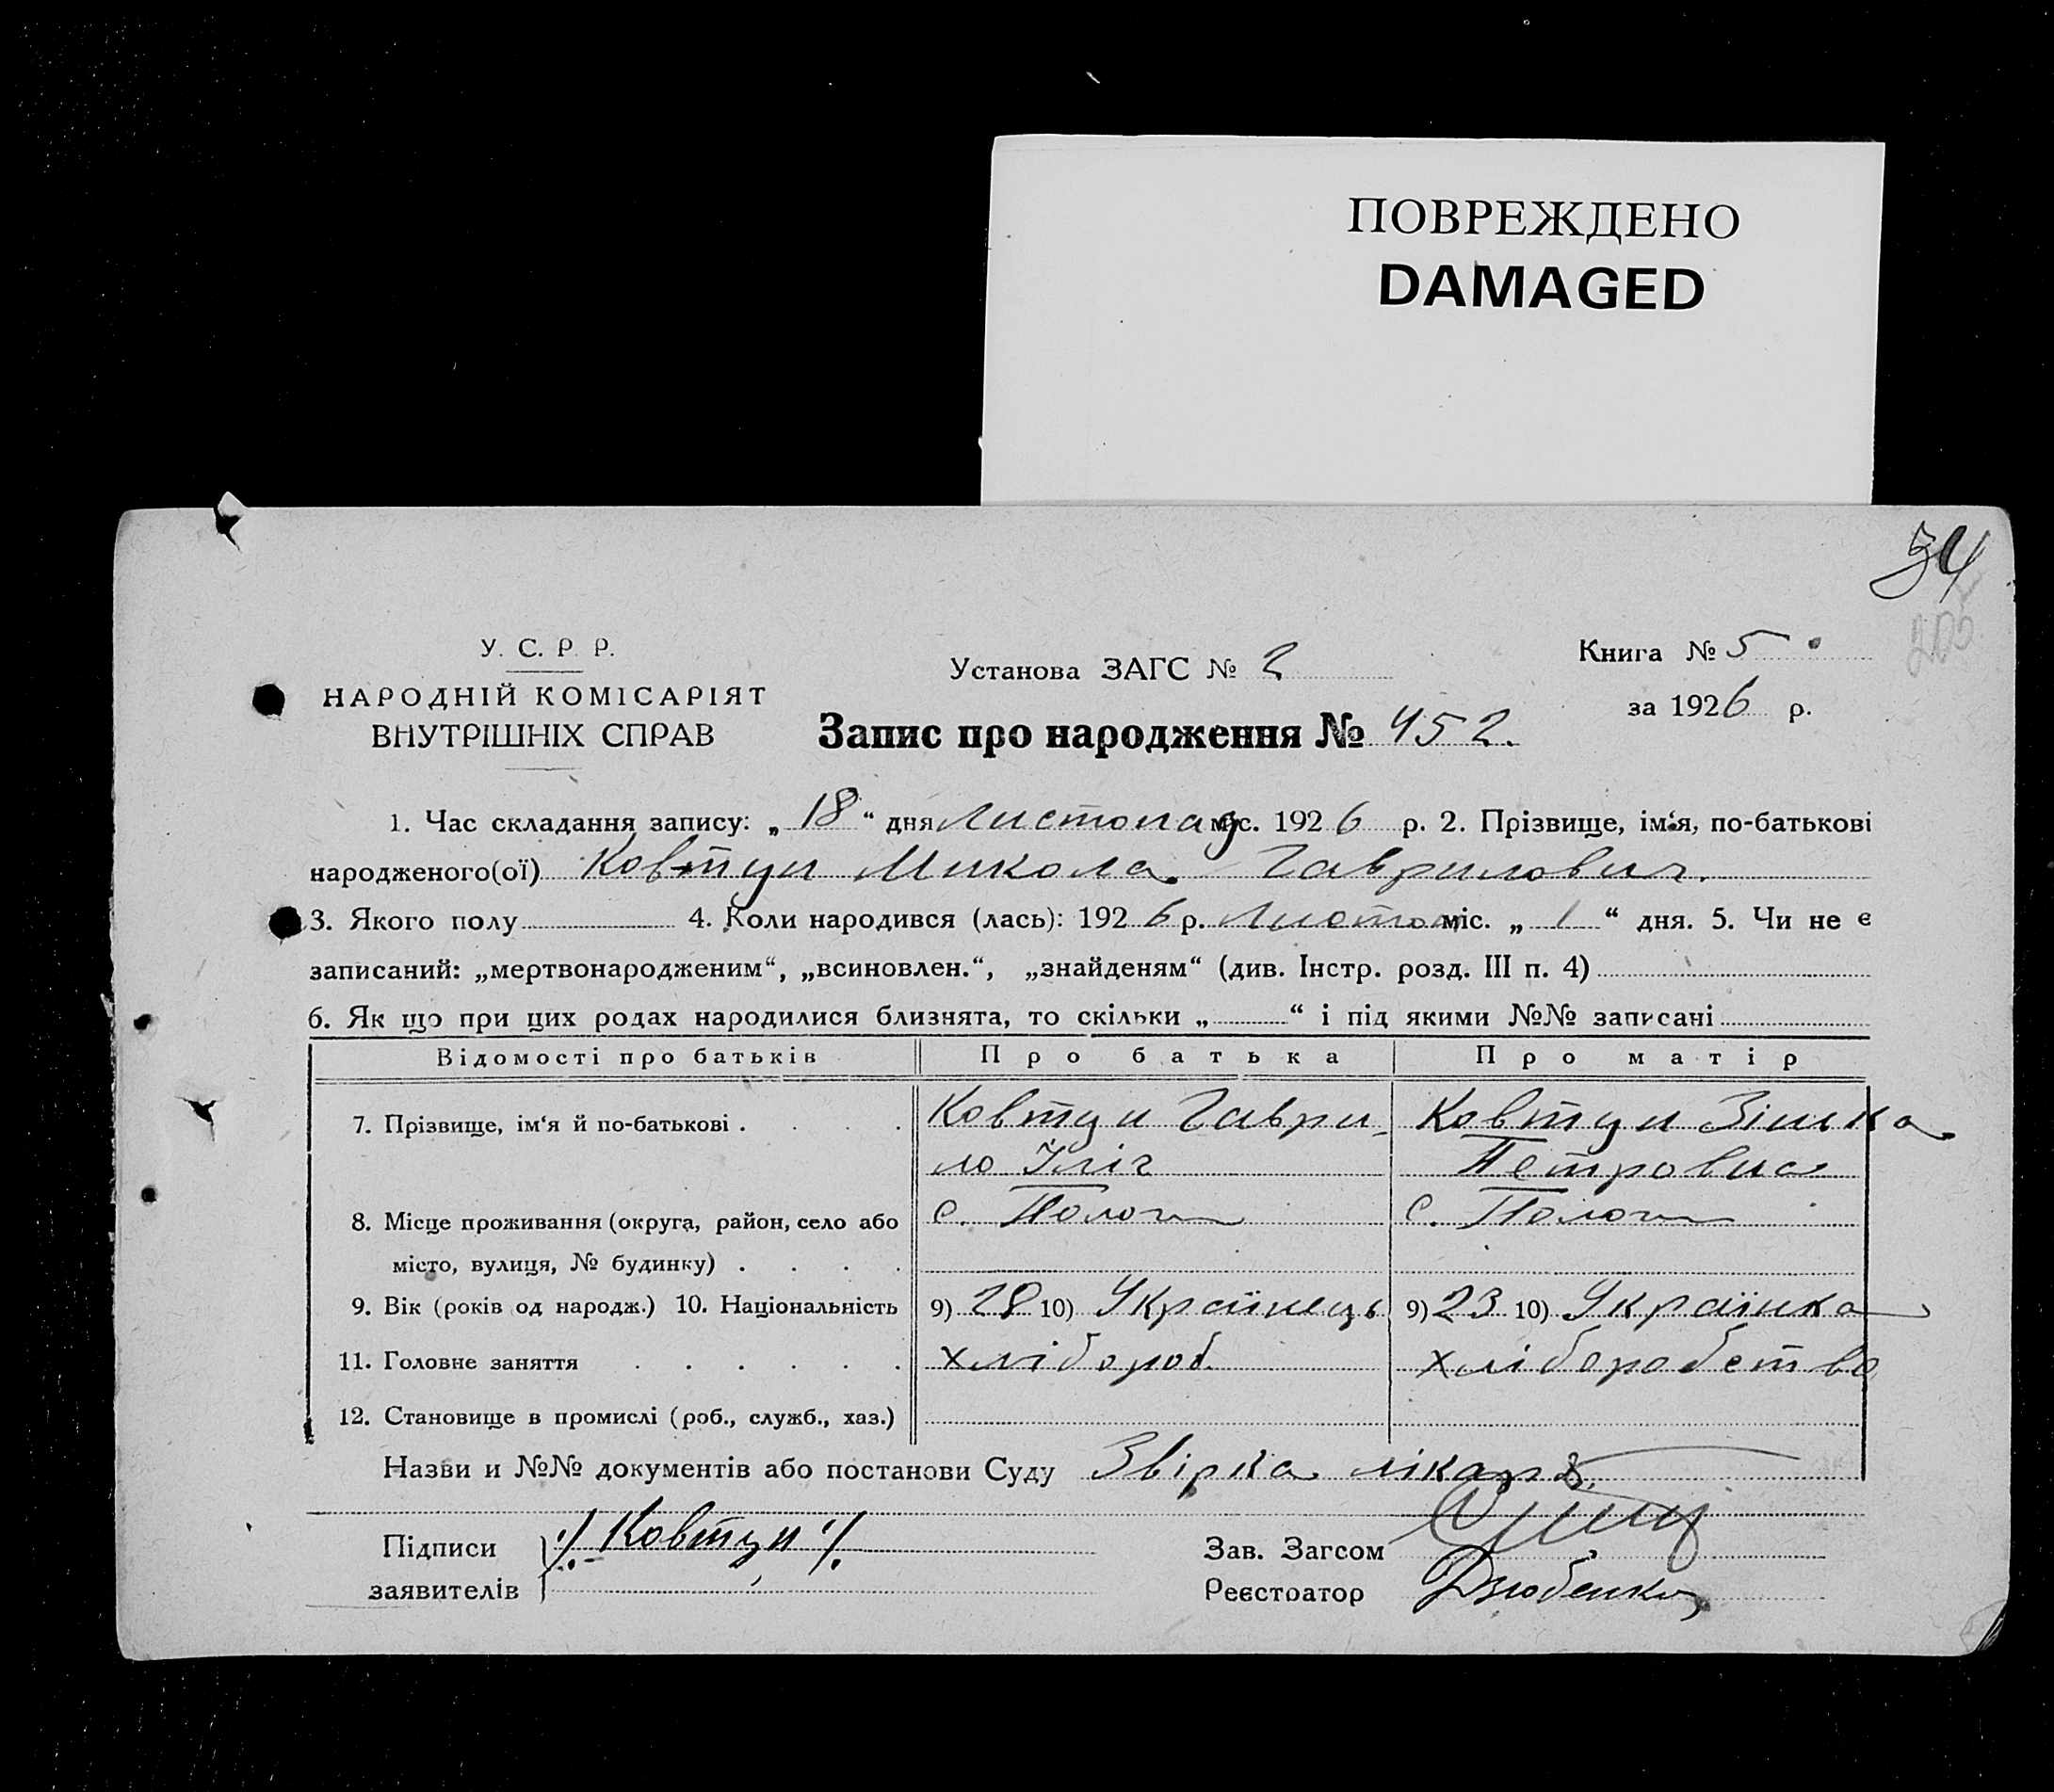 ПОВРЕЖДЕНО
DAMAGED
34
205
У. С. Р. Р.
НАРОДНІЙ КОМІСАРІЯТ
ВНУТРІШНІХ СПРАВ
Установа ЗАГС № 2
Книга № 5
за 1926 р.
Запис про народження № 452.
1. Час складання запису: „ 18 “ дня Листопад міс. 1926 р. 2. Прізвище, ім‘я, по-батькові
народженого(ої) Ковтун Микола Гаврилович.
3. Якого полу 4. Коли народився (лась): 1926 р. Листоп міс. „ 1 “ дня. 5. Чи не є
записаний: „мертвонародженим“, „всиновлен.“, „знайденям“ (див. Інстр. розд. III п. 4)
6. Як що при цих родах народилися близнята, то скільки „ “ і під якими №№ записані
Відомості про батьків Про батька Про матір
7. Прізвище, ім‘я й по-батькові . Ковтун Гаври- Ковтун Зінька
ло Ілліч Петровна
8. Місце проживання (округа, район, село або с. Пологи с. Пологи
місто, вулиця, № будинку)
9. Вік (років од народж.) 10. Національність 9) 28 10) Українець 9) 23 10) Українка
11. Головне заняття хлібороб. хліборобство
12. Становище в промислі (роб., служб., хаз.)
Назви и №№ документів або постанови Суду Звірка лікаря
Підписи
заявителів
/Ковтун/.
Зав. Загсом
Реєстратор Дзюбенко